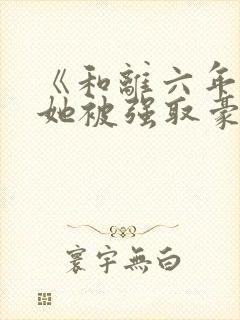 《和離六年
她被强取豪
寰宇無白